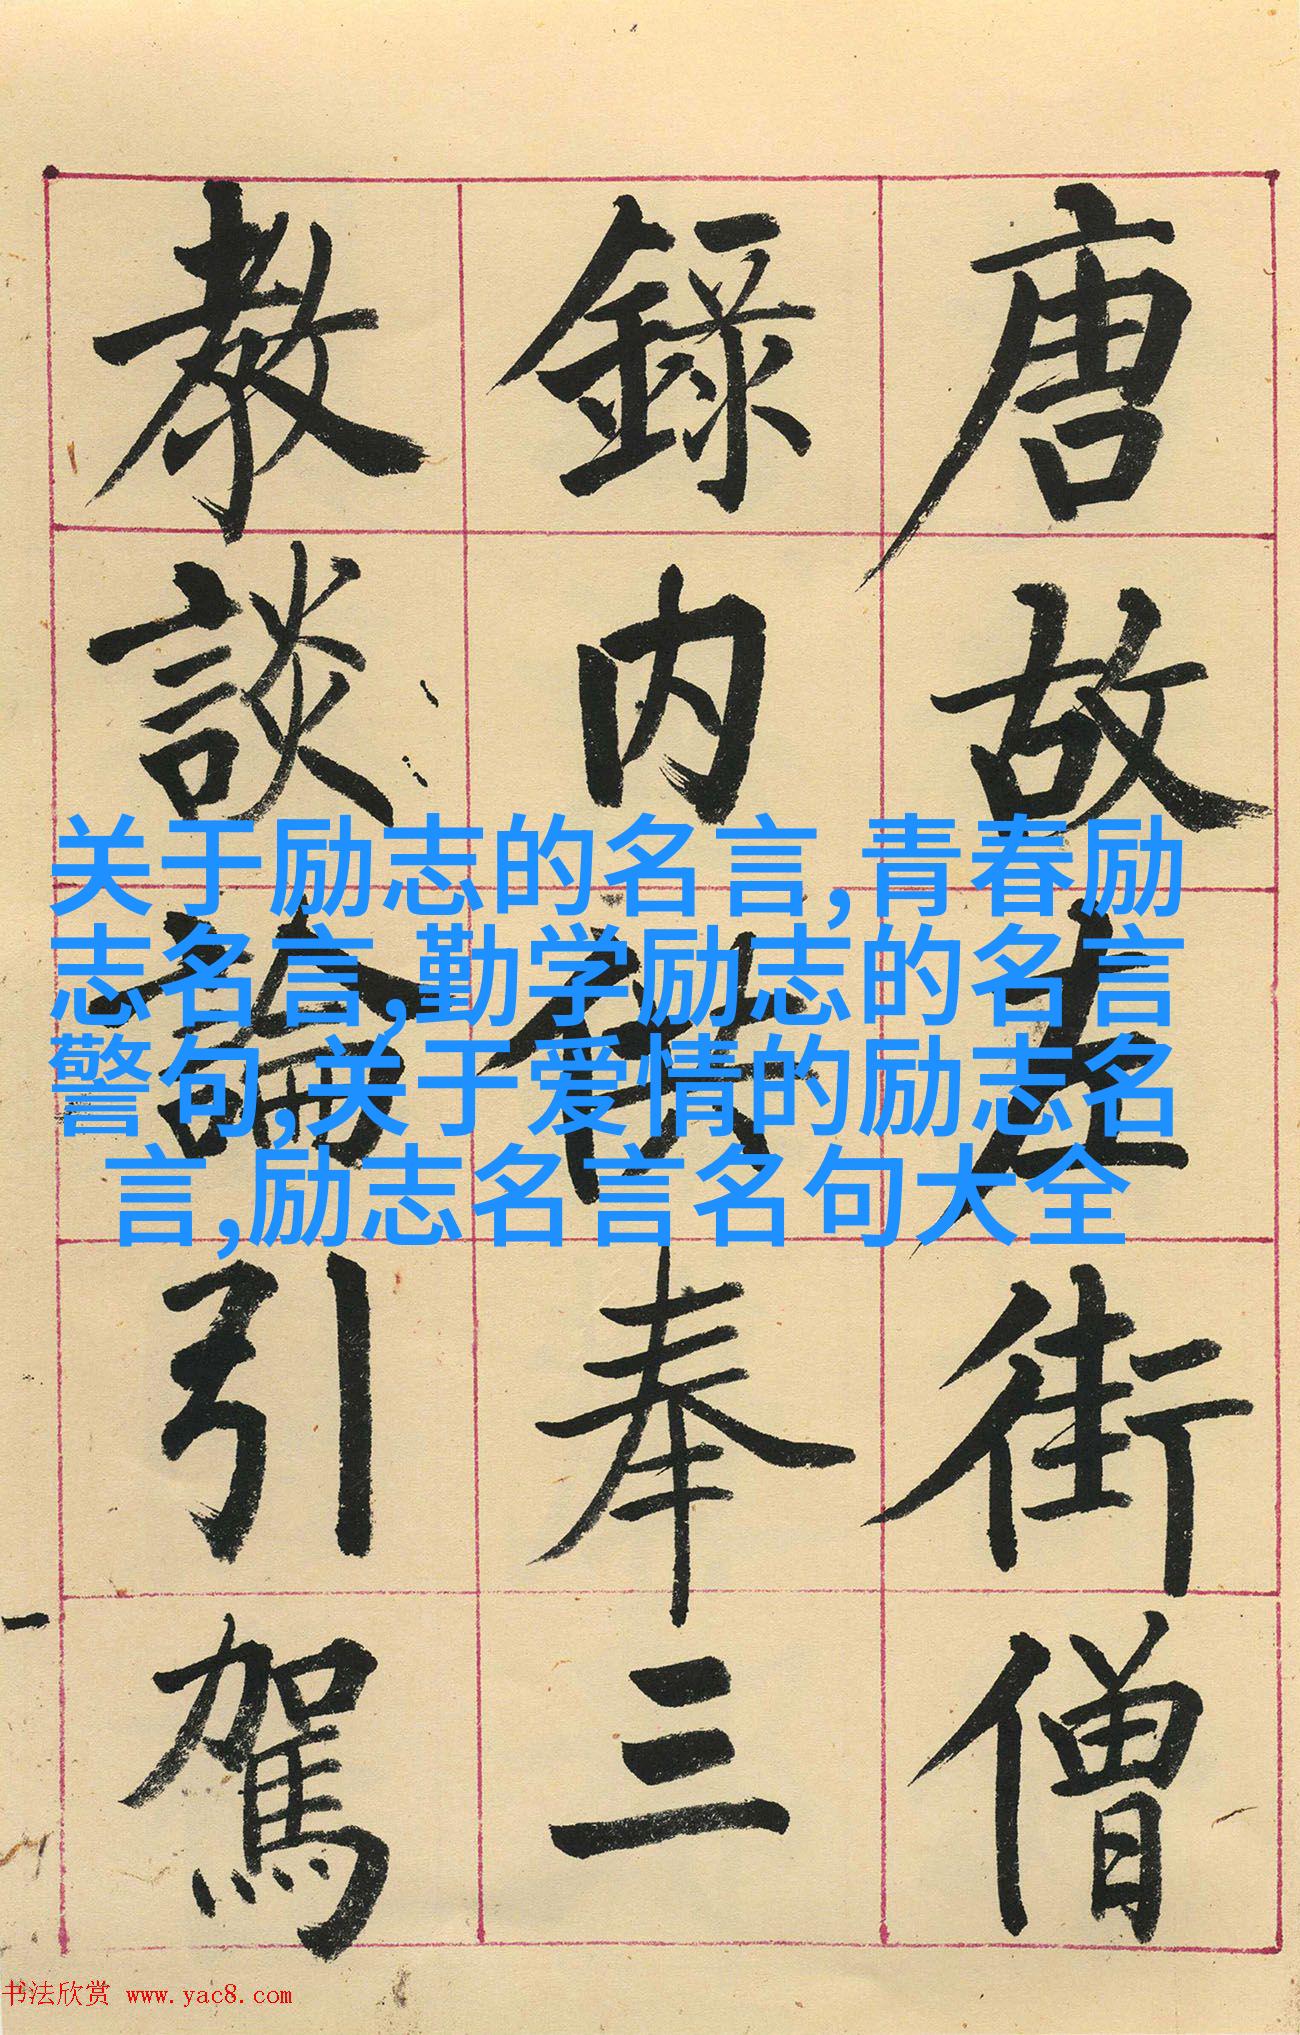 唐故左街僧
錄内供奉三
教談論引駕
关于励志的名言,青春励
志名言,勤学励志的名言
警句,关于爱情的励志名
言,励志名言名句大全
书法欣赏 www.yac8.com